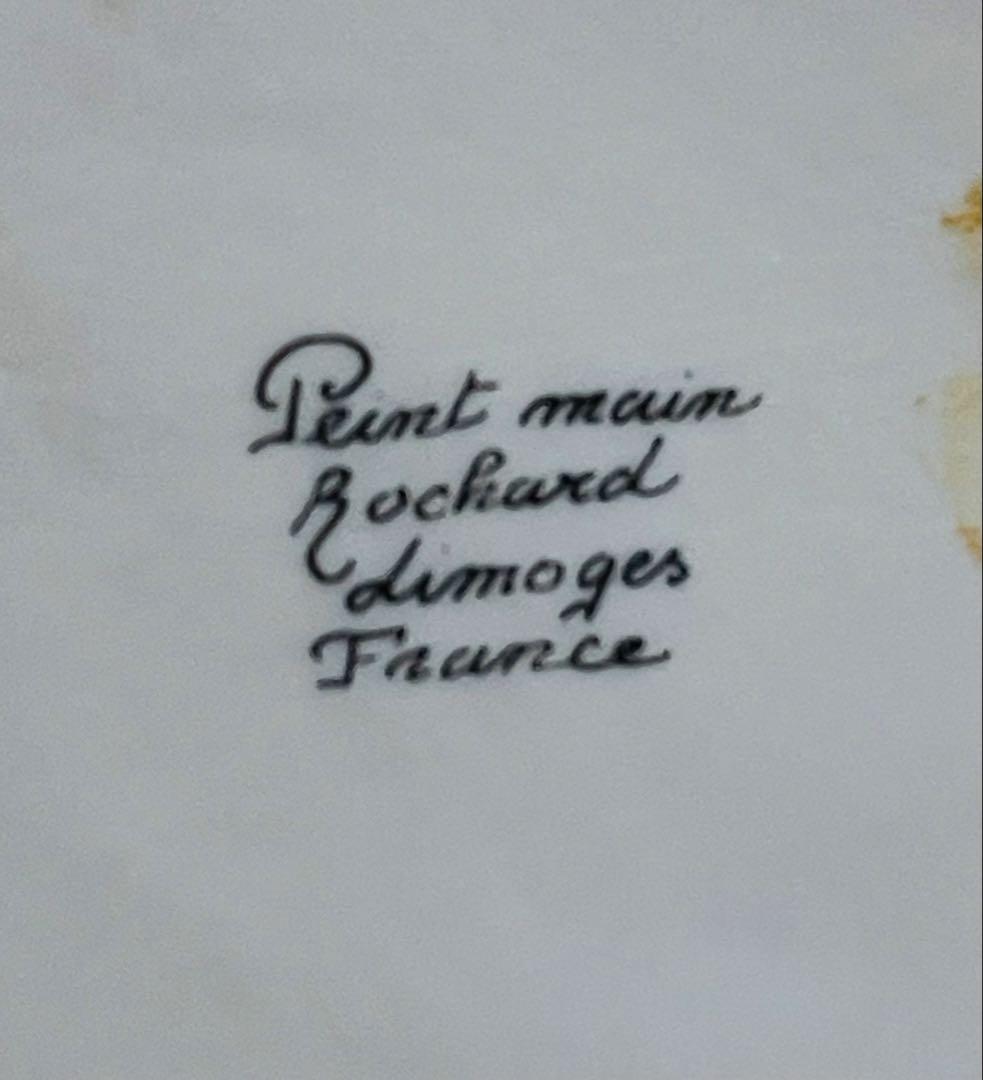 Peint main
Rochard
Limoges
France